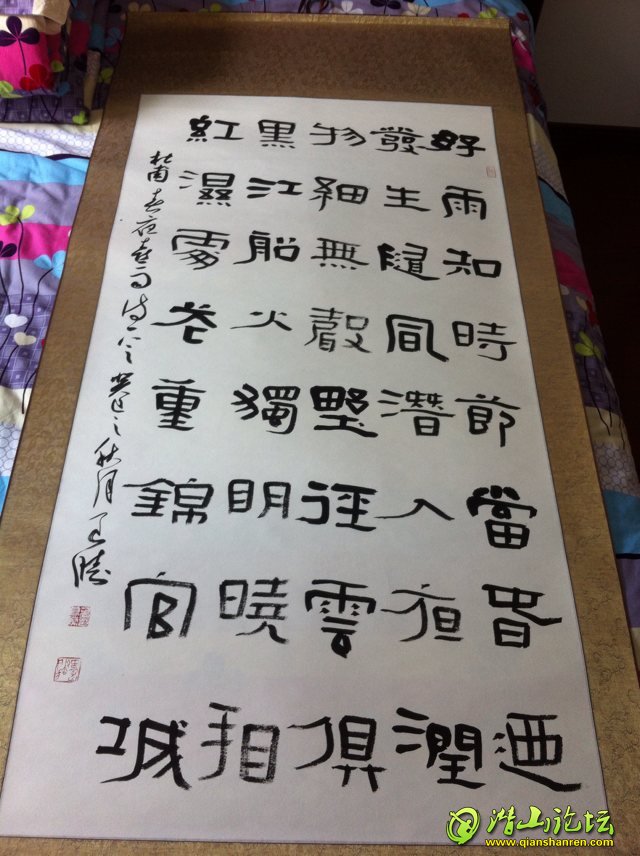 好雨知時節當春迺
發生隨風潛入夜潤
物細無聲野徑雲俱
黑江船火獨明曉看
紅濕處花重錦官城
杜甫春夜喜雨詩一首癸巳之秋月
潜山论坛
www.qianshanren.com